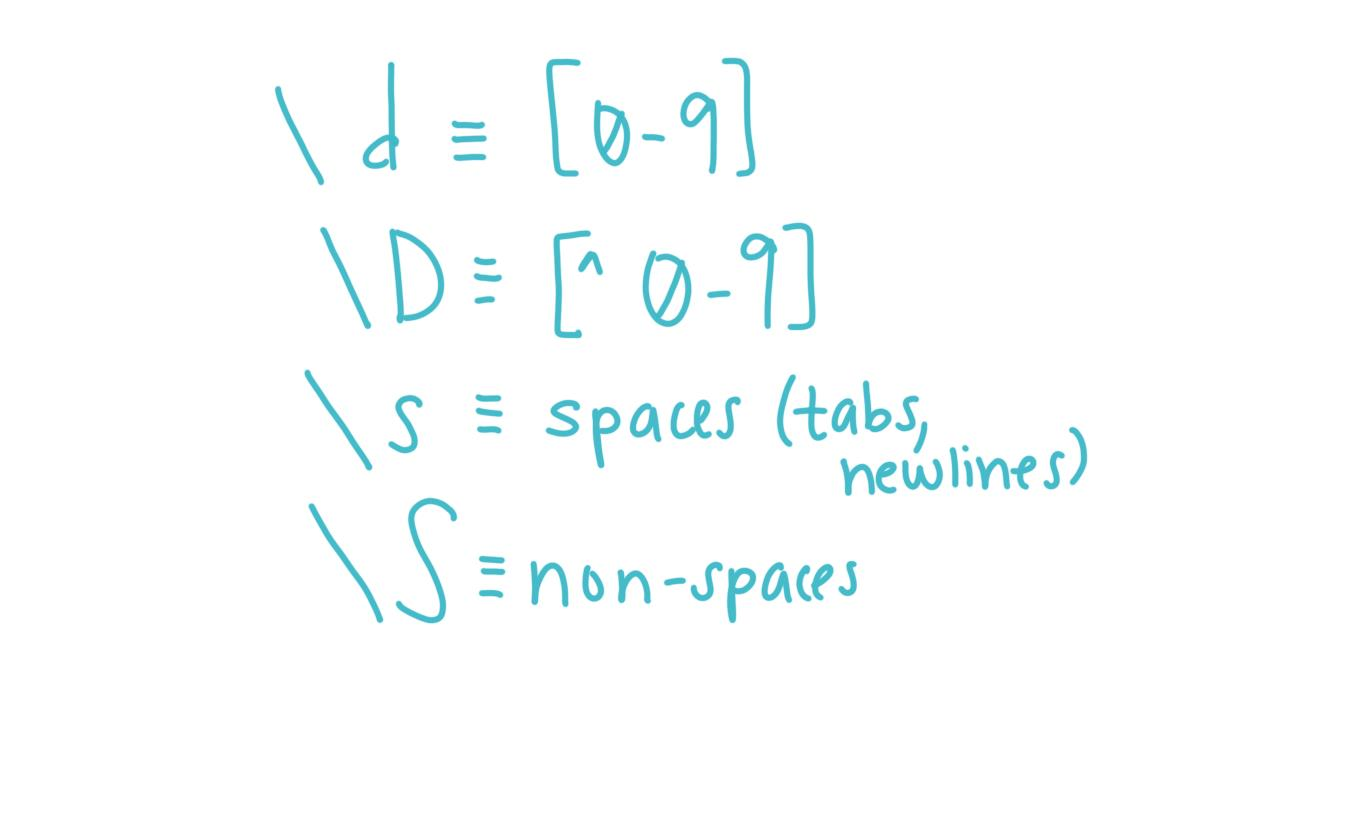 \d ≡ [0-9]
\D ≡ [^0-9]
\s ≡ spaces (tabs,
newlines)
\S ≡ non-spaces